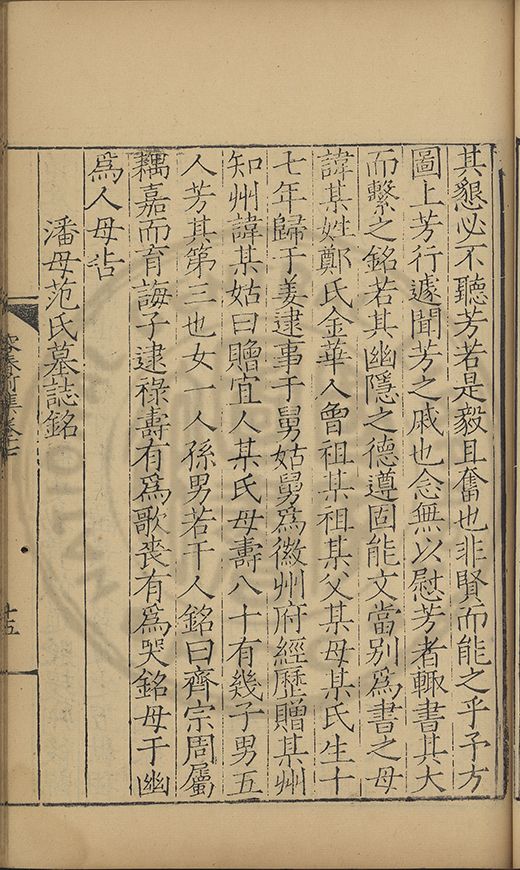 其懇必不聽芳若是毅且奮也非賢而能之乎予方
圖上芳行遽聞芳之戚也念無以慰芳者輙書其大
而繫之銘若其幽隱之德遵固能文當别爲書之母
諱某姓鄭氏金華人曾祖某祖某父某母某氏生十
七年歸于姜逮事于舅姑舅爲徽州府經歷贈某州
知州諱某姑曰贈宜人某氏母壽八十有幾子男五
人芳其第三也女一人孫男若干人銘曰齊宗周屬
耦嘉而育誨子逮祿壽有爲歌喪有爲哭銘母于幽
爲人母告
潘母范氏墓誌銘
十五